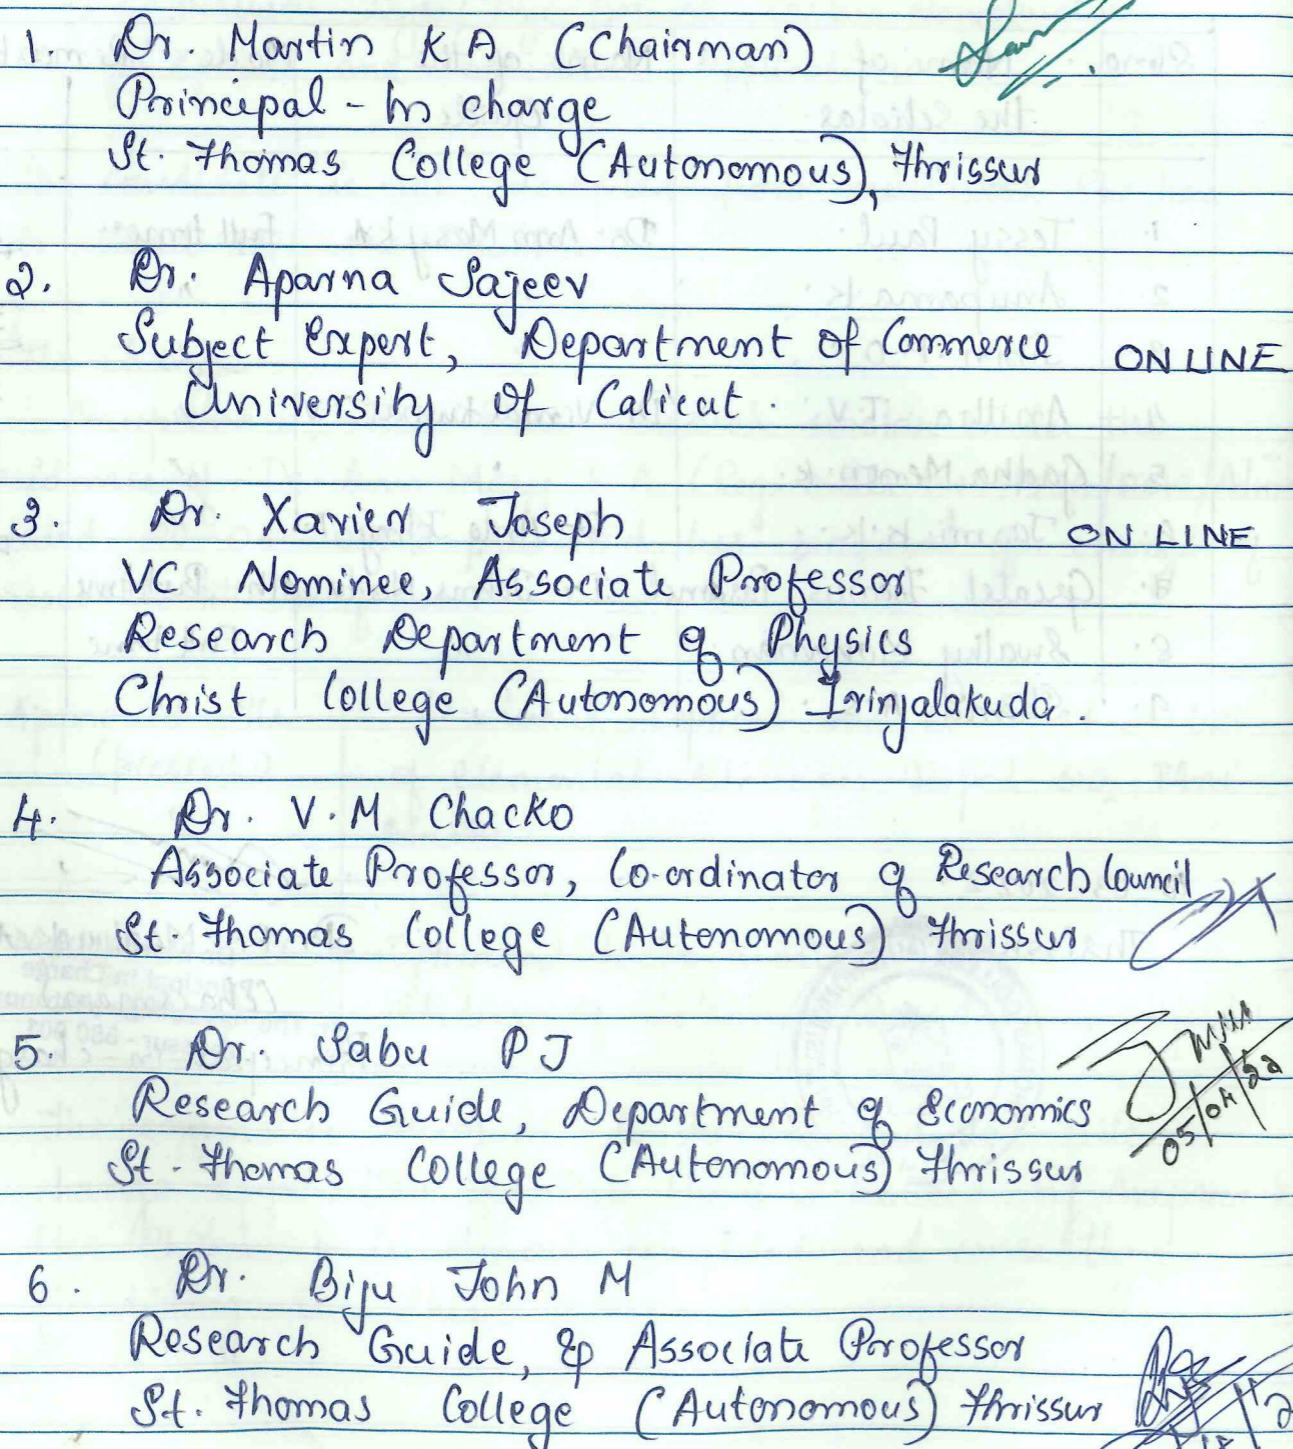 1. Dr. Martin K A (Chairman)
Principal - In charge
St. Thomas College (Autonomous), Thrissur
2. Dr. Aparna Sajeev
Subject Expert, Department of Commerce ONLINE
University of Calicut.
3. Dr. Xavier Joseph ONLINE
VC Nominee, Associate Professor
Research Department of Physics
Christ College (Autonomous) Irinjalakuda.
4. Dr. V.M Chacko
Associate Professor, Co-ordinator of Research Council
St. Thomas College (Autonomous) Thrissur
5. Dr. Sabu P J
Research Guide, Department of Economics
05/04/22
St. Thomas College (Autonomous) Thrissur
6. Dr. Biju John M
Research Guide, & Associate Professor
St. Thomas College (Autonomous) Thrissur